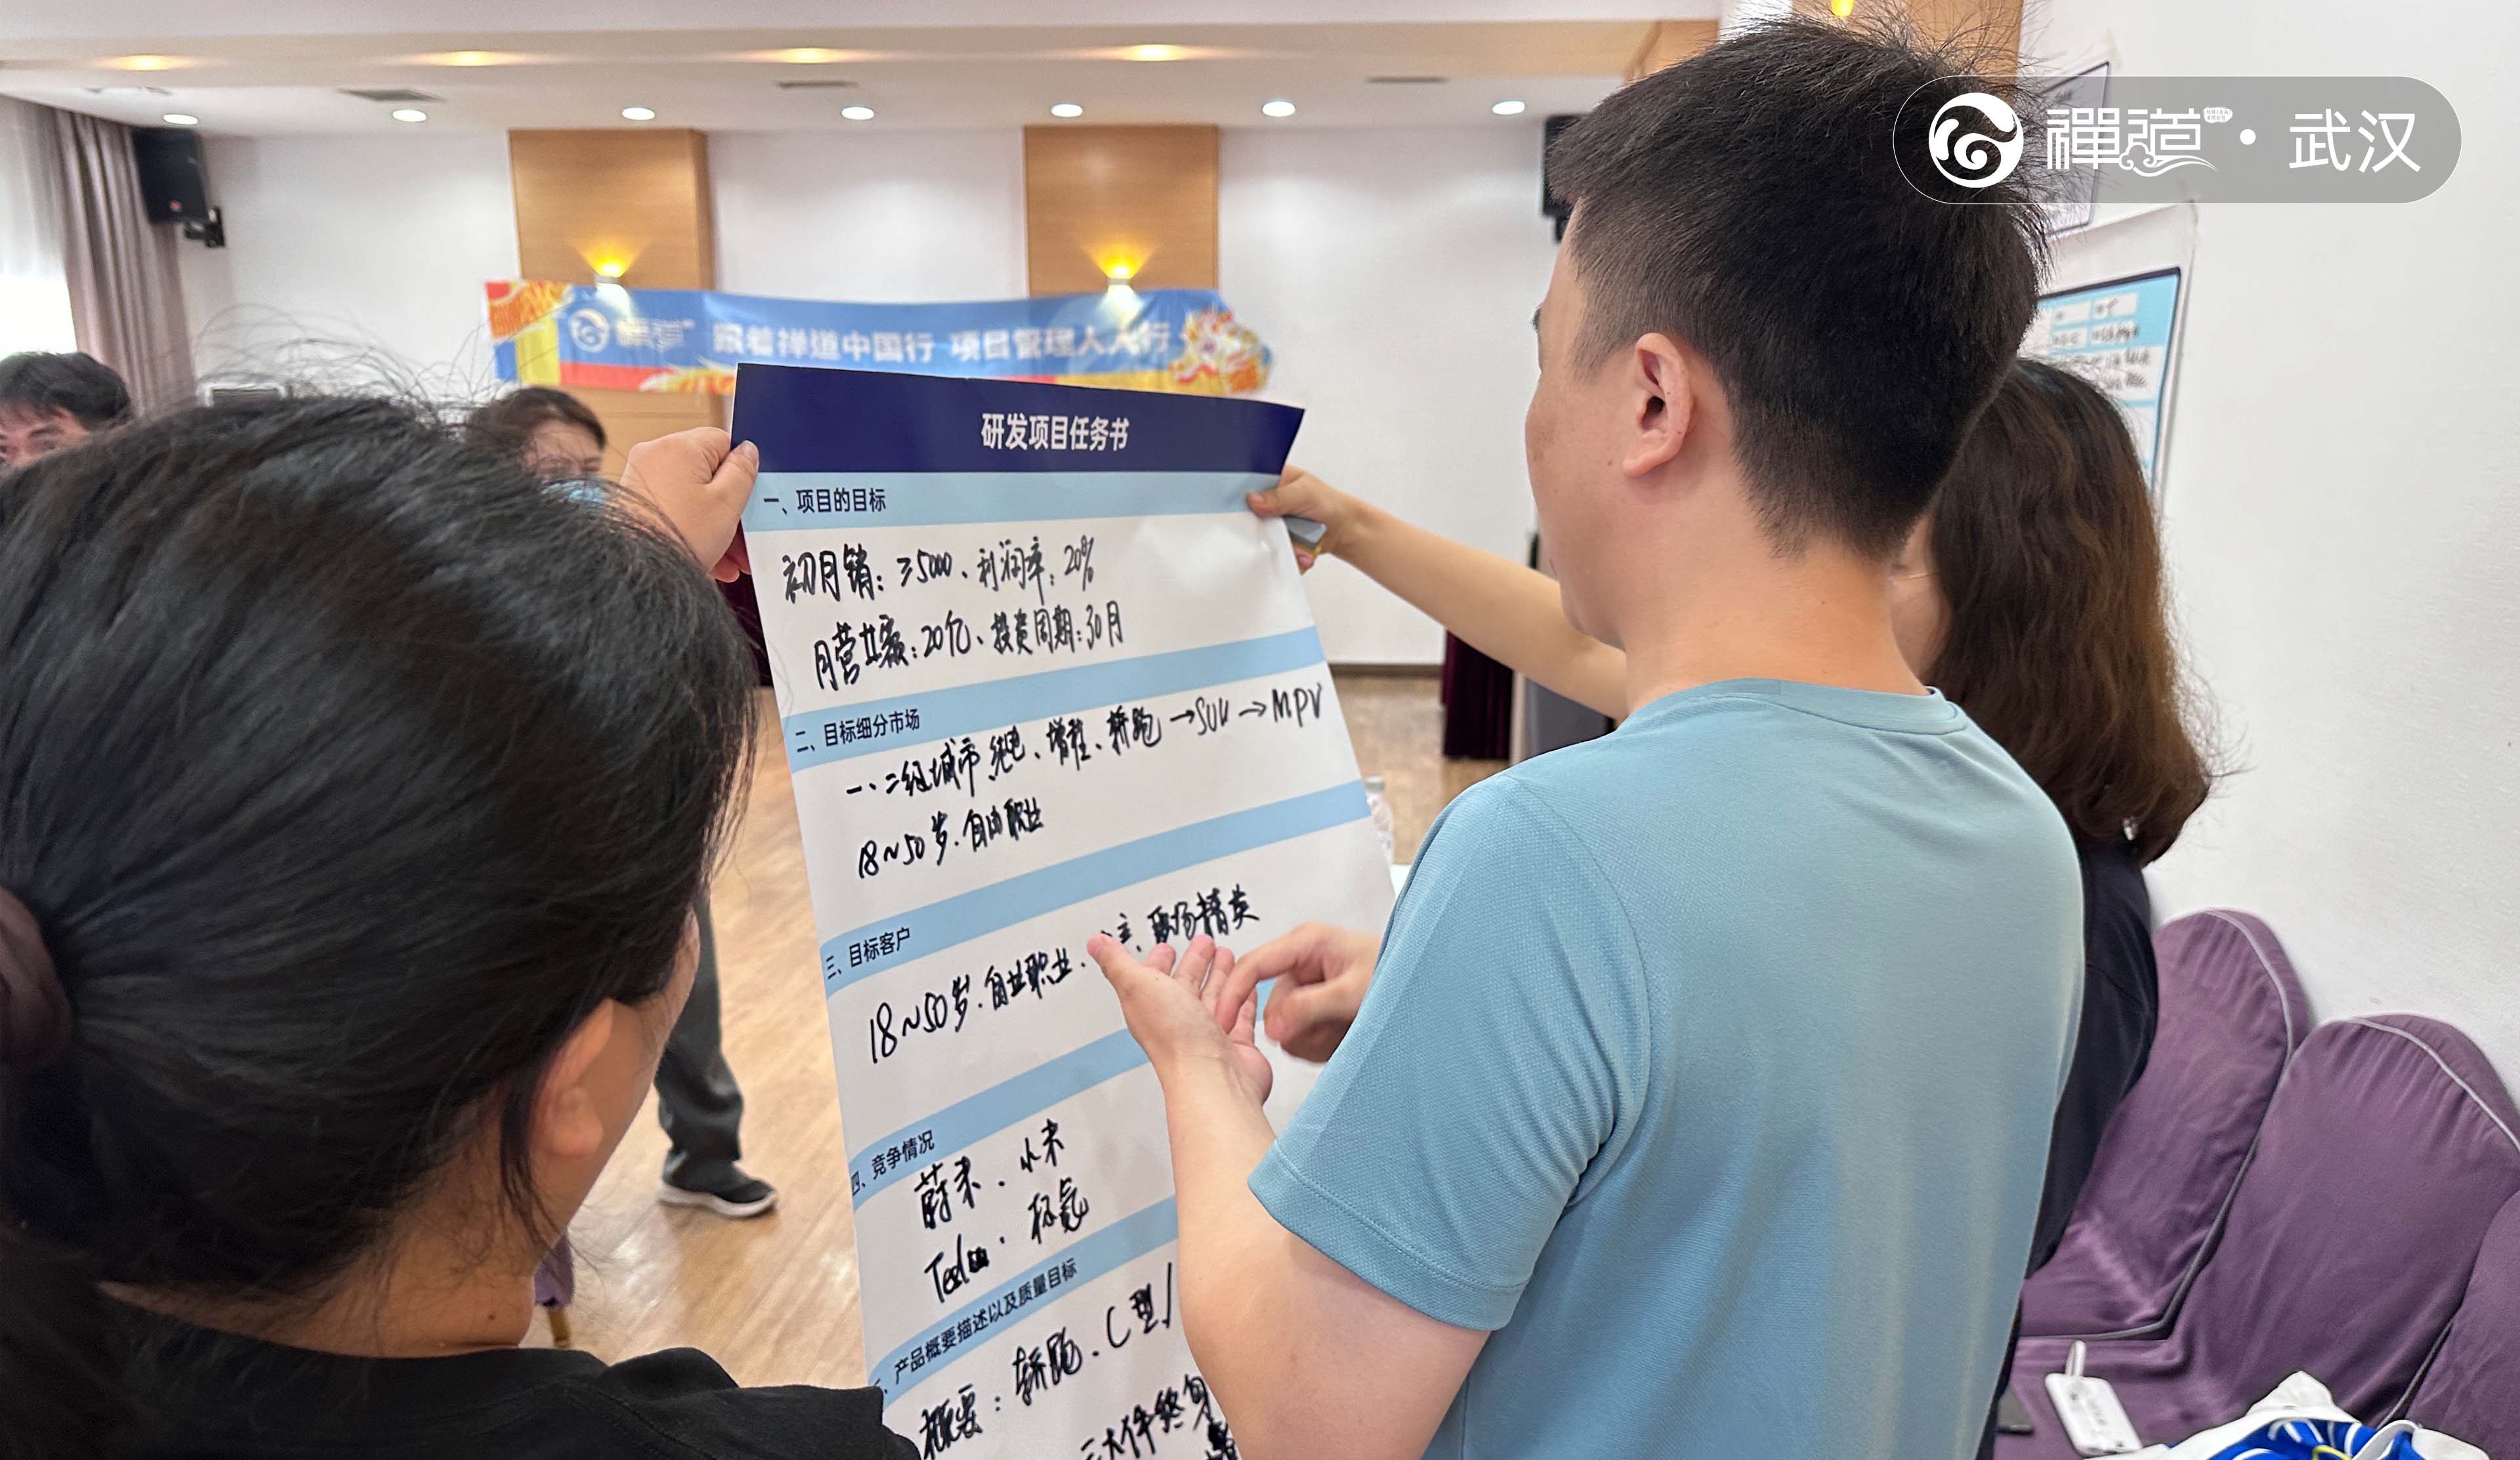 禅道 · 武汉
禅道 跟着禅道中国行 项目管理人人行
研发项目任务书
一、项目的目标
初月销：≥5000、利润率：20%
月营业额：20亿、投资周期：30月
二、目标细分市场
一、二线城市 纯电、增程、轿跑→SUV→MPV
18~50岁.自由职业
三、目标客户
18~50岁.自由职业、 职场精英
四、竞争情况
蔚来、小米
Tesla、极氪
产品概要描述以及质量目标
概要：轿跑、C型
三大件终身